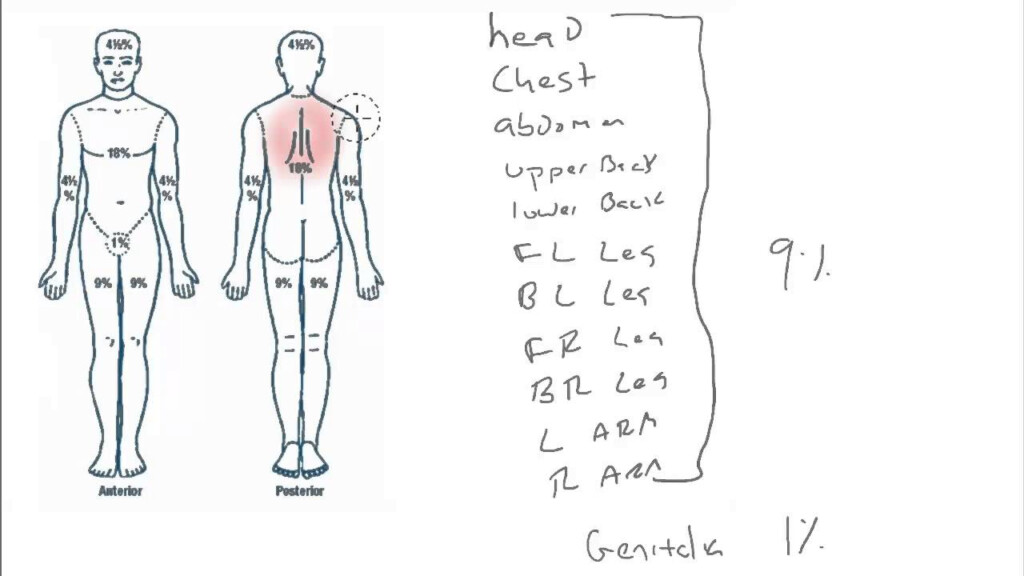 4½%
18%
4½
%
4½
%
1%
9%
9%
Anterior
4½%
18%
4½
%
4½
%
9%
9%
Posterior
head
Chest
abdomen
upper Back
lower Back
FL Leg
BL Leg
FR Leg
BR Leg
L ARM
R ARM
9%
Genitalia 1%